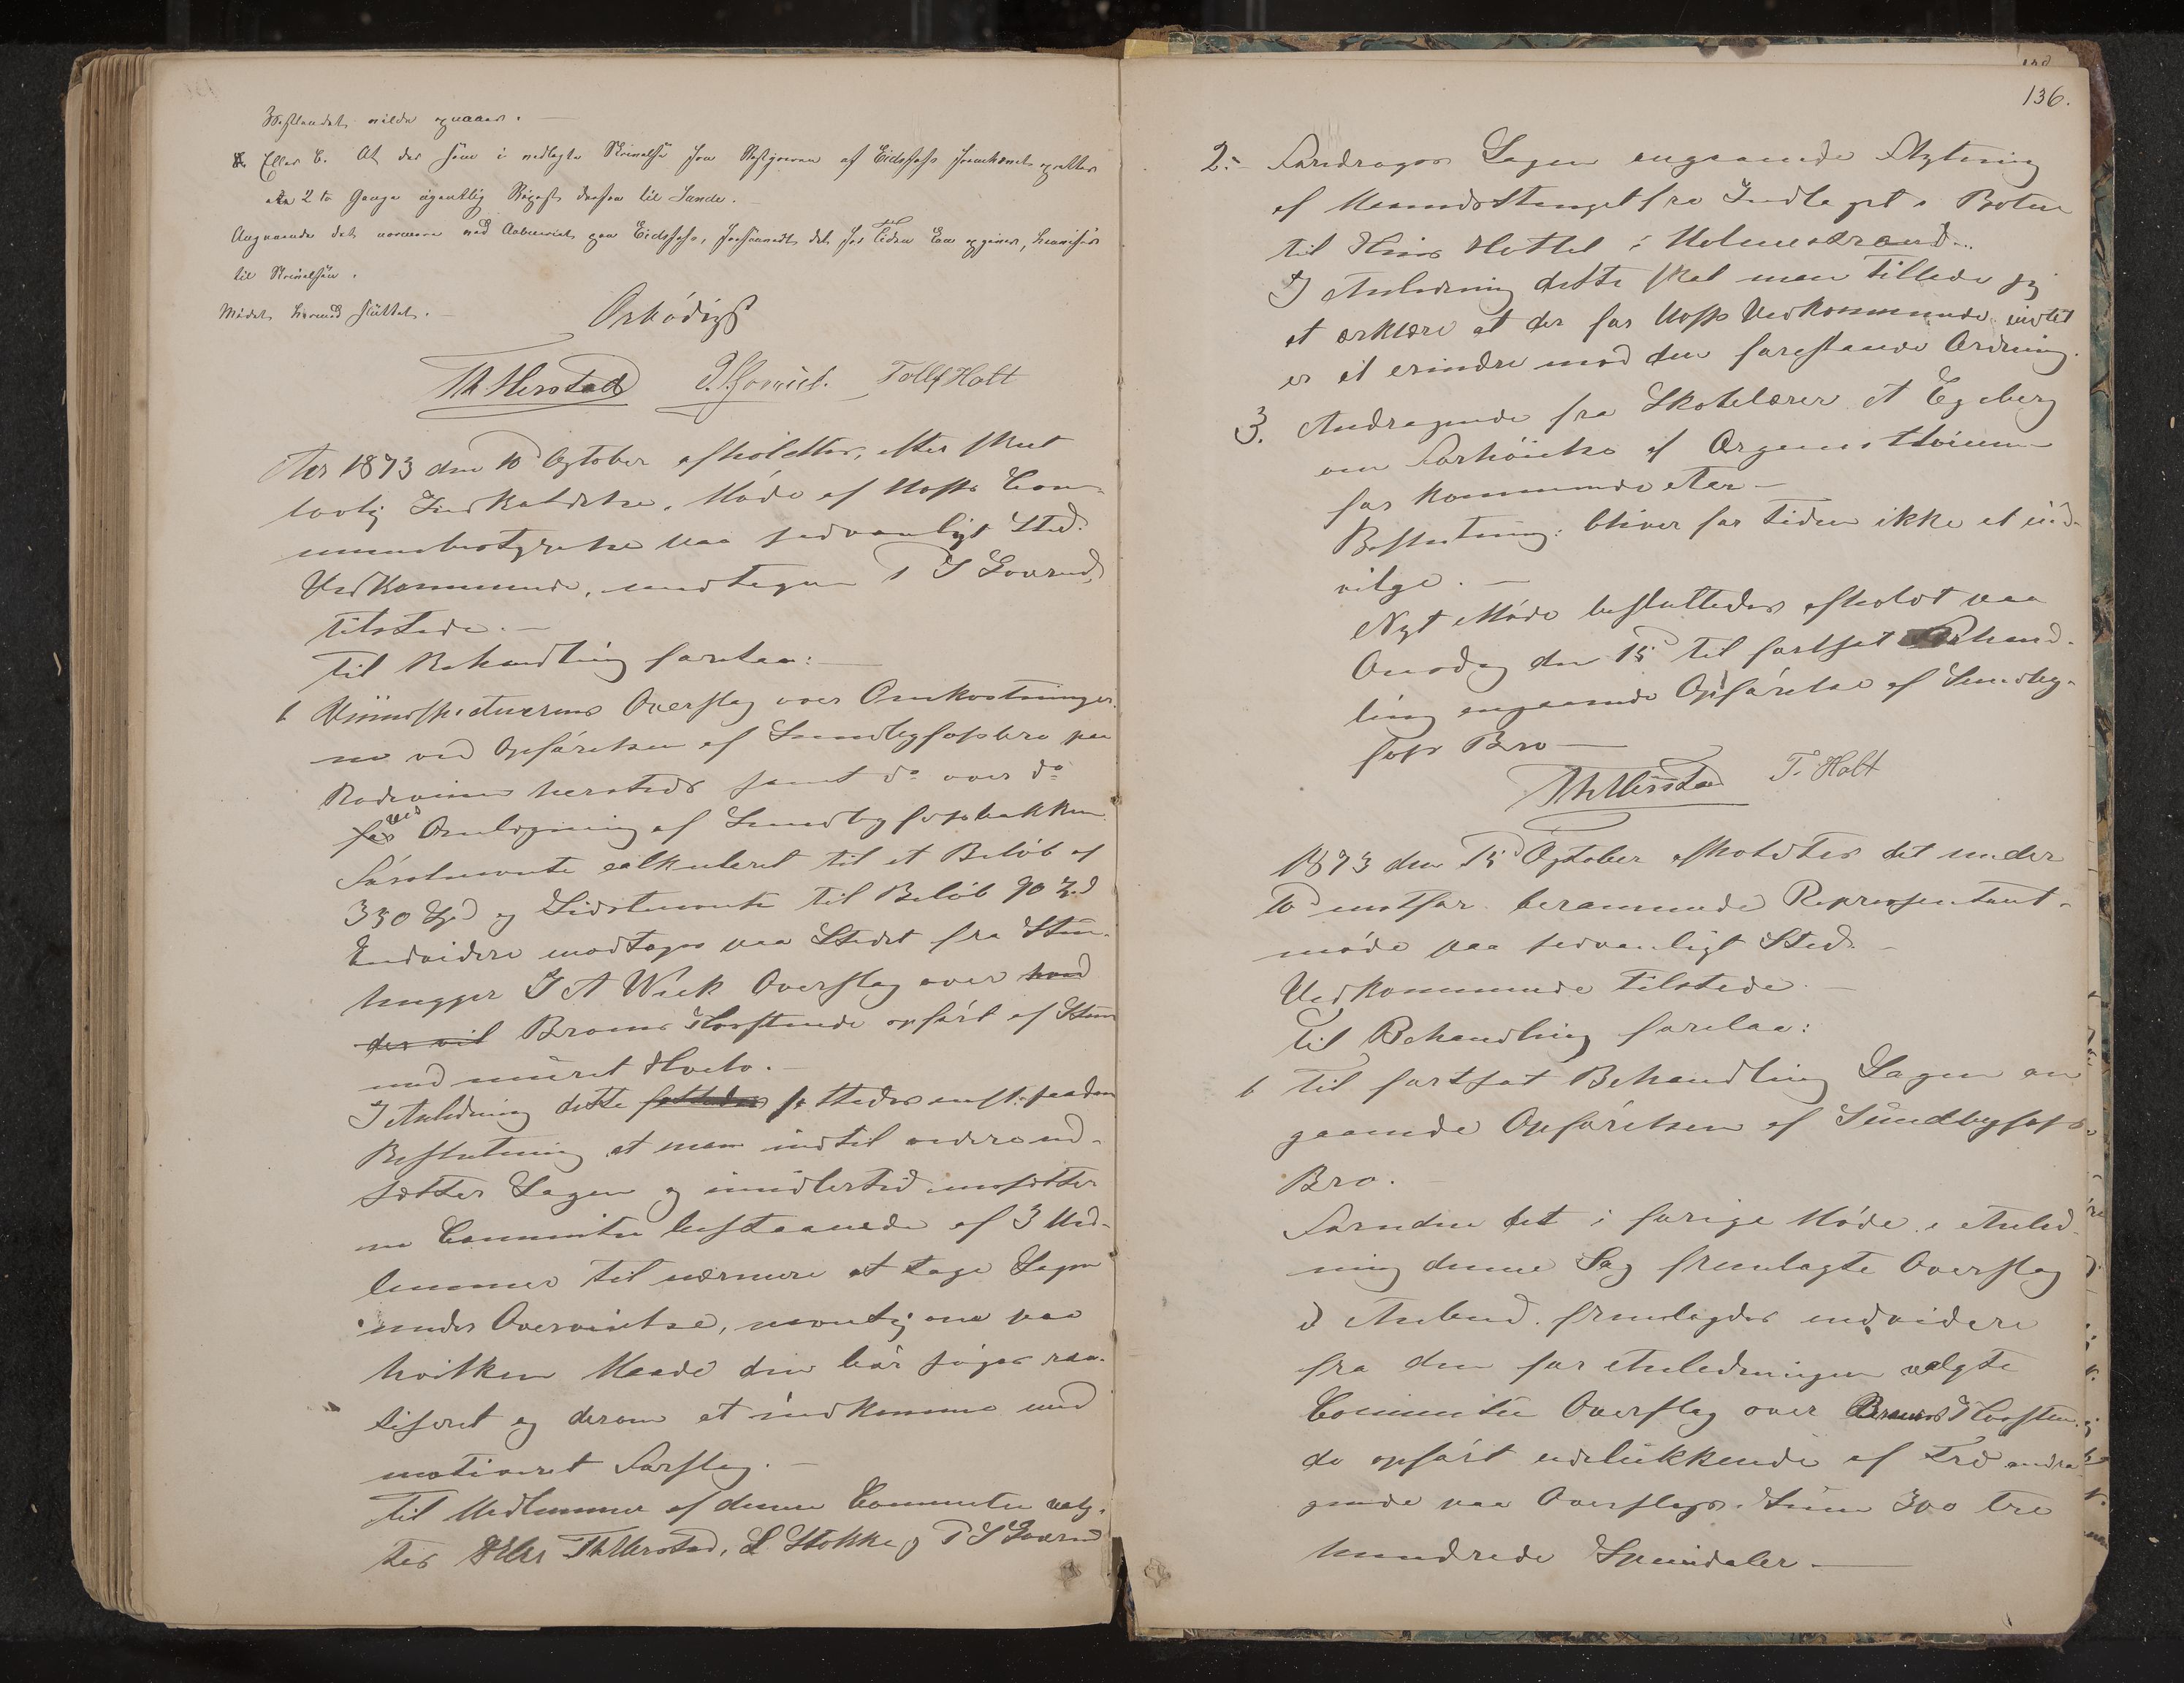 Bestandet vilde opnaaes. —
Eller C. At der som i nedlagte Skrivelse fra Bestyreren af Eidsfoss Jernværk opsættes
en 2 to Gange ugentlig Bipost derfra til Sande. —
Angaaende det nærmere ved Aabneriet paa Eidsfoss, forsaavidt det for Tiden kan opgives, henvises
til Skrivelsen.
Mødet hermed sluttet. —
Ærbødigst
Th Herstad Tollf Holt
Aar 1873 den 10d October afholdtes, efter skeet
lovlig Indkaldelse, Møde af Hofs Com-
munebestyrelse paa sedvanligt Sted.
Vedkommende, undtagen P S Goverud,
tilstede. —
Til Behandling forelaa: —
1 Veiinspecteurens Overslag over Omkostninger-
ne ved Opførelsen af Sundbyfossbro paa
Rodeveien hersteds samt do over do
for ved Omlægning af Sundbyfossbakken
Førstnævnte calkuleret til et Beløb af
350 Spd og Sidstnævnte til Beløb 90 Spd
Endvidere modtoges paa Stedet fra Sten-
hugger J A Wiek Overslag over hvad
der vil Broens Kostende opført af Sten
med muret Hvelv. —
I Anledning dette fattedes fattedes enst: saadan
Beslutning at man indtil videre ud-
sætter Sagen og imidlertid nedsætter
en Committe bestaaende af 3 Med-
lemmer til nærmere at tage Sagen
under Overveielse, navnlig om paa
hvilken Maade den bør søges rea-
liseret og derom at indkomme med
motiveret Forslag. —
Til Medlemmer af denne Committe valg-
tes DHrr Th Herstad, L Stokke og P S Goverud
136.
2. — Foredroges Sagen angaaende Flytning
af Maanedsthinget fra Indlaget i Botne
til Hotel i Holmestrand. —
I Anledning dette skal man tillade sig
at erklære at der for Hofs Vedkommende intet
er at erindre mod den forestaaende Ordning.
3. Andragende fra Skolelærer A Egeberg
om Forhøielse af Organistlønnen
for kommende Aar —
Beslutning: bliver for Tiden ikke at ind-
vilge. —
Nyt Møde besluttedes afholdt paa
Onsdag den 15d til fortsat Behand-
ling angaaende Opførelse af Sundby-
foss Bro —
Th Herstad T. Holt
1873 den 15d October afholdtes det under
10d næstfor. berammede Representant-
møde paa sedvanligt Sted. —
Vedkommende tilstede. —
Til Behandling forelaa:
1 Til fortsat Behandling Sagen an-
gaaende Opførelsen af Sundbyfoss
Bro. —
Foruden det i forige Møde i Anled-
ning denne Sag fremlagte Overslag
& Anbud. fremlagdes endvidere
fra den for Anledningen valgte
Committe Overslag over Broens Kosten-
de opført udelukkende af Træ andra-
gende paa Overslags. Sum 300 tre
hundrede Speciedaler. —